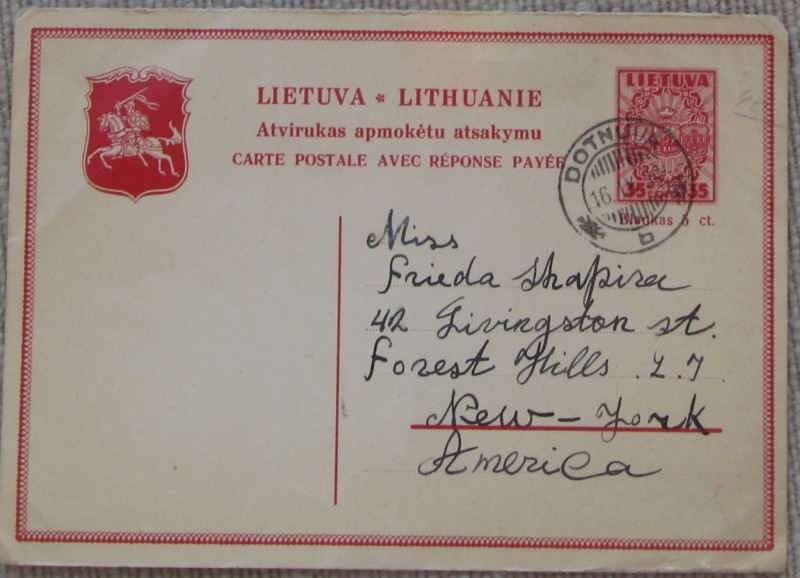 LIETUVA * LITHUANIE
Atvirukas apmokėtu atsakymu
CARTE POSTALE AVEC RÉPONSE PAYÉE
LIETUVA
35 35
Blankas 5 ct.
DOTNUVA
16.
b
Miss
Frieda Shapira
42 Livingston st.
Forest Hills . L. I.
New-York
America